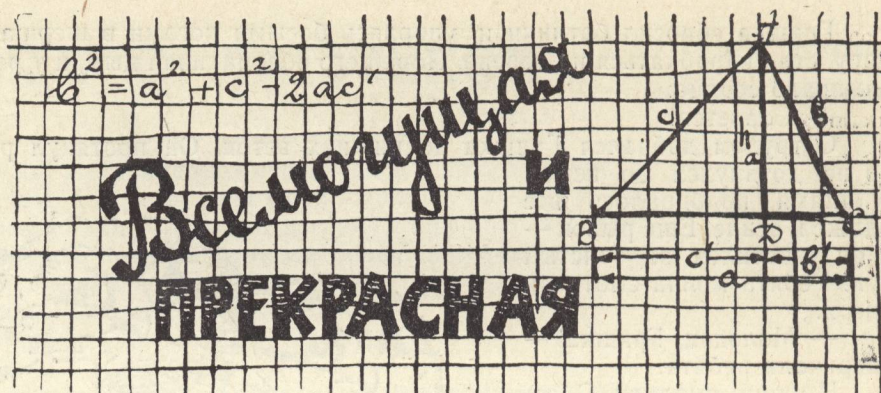 b² = a² + c² - 2ac'
Всемогущая
и
ПРЕКРАСНАЯ
A
c
hₐ
b
B
D
C
c'
b'
a